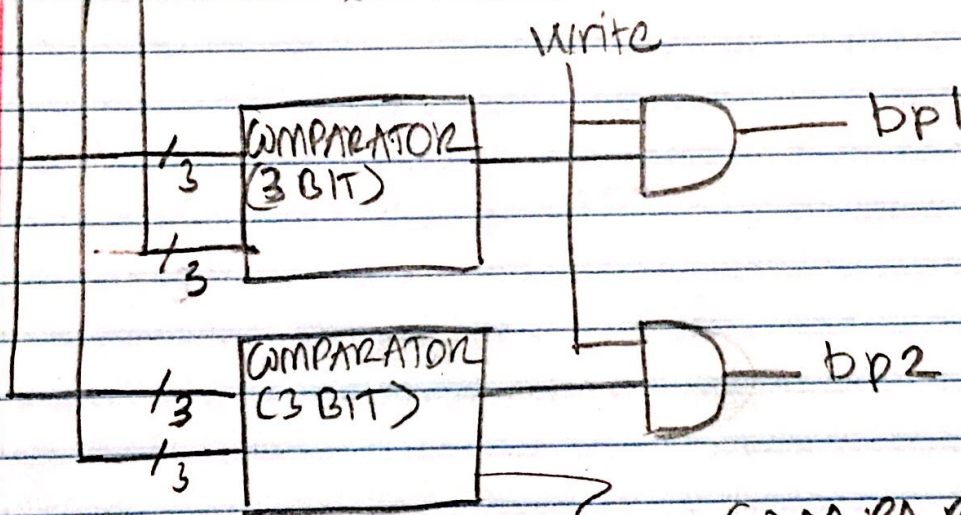 Write
COMPARATOR
(3 BIT)
bp1
3
3
COMPARATOR
(3 BIT)
bp2
3
3